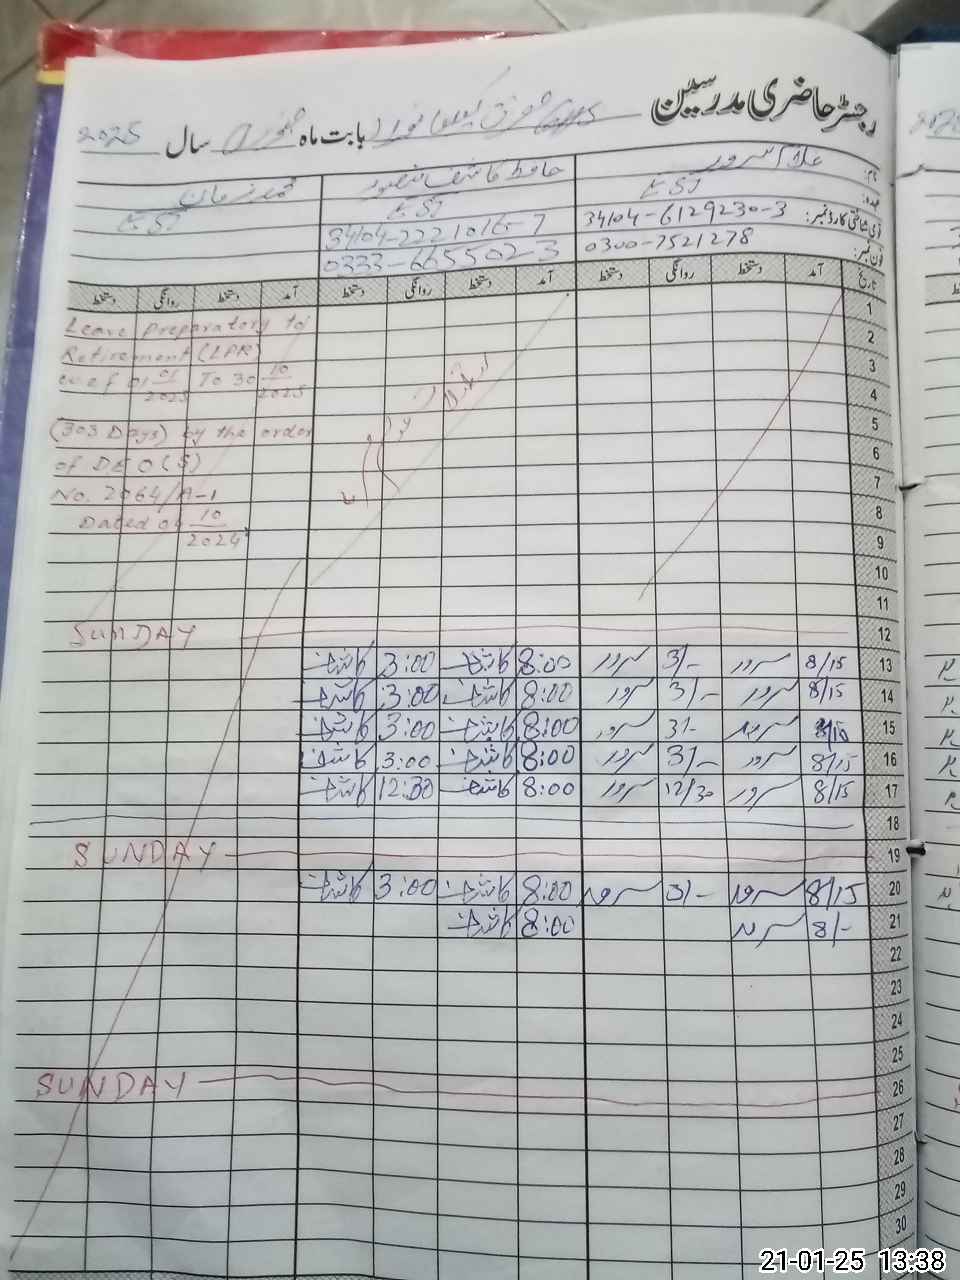 رجسٹر حاضری مدرسین GHS بابت ماہ جنوری سال 2025
نام: غلام سرور حافظ کاشف منصور محمد زمان
عہدہ: EST EST EST
قومی شناختی کارڈ نمبر: 34104-6129230-3 34104-2221016-7
فون نمبر: 0300-7521278 0333-665502-3
تاریخ آمد دستخط روانگی دستخط آمد دستخط روانگی دستخط آمد دستخط روانگی دستخط
Leave preparatory to
Retirement (LPR)
w.e.f 01 01/2025 To 30 10/2025
(303 Days) by the order
of DEO(S)
No. 2064/A-1
Dated 09 10/2024
1
2
3
4
5
6
7
8
9
10
11
12 SUNDAY
13 8/15 سرور 3/- سرور 8:00 کاشف 3:00 کاشف
14 8/15 سرور 3/- سرور 8:00 کاشف 3:00 کاشف
15 سرور 3/- سرور 8:00 کاشف 3:00 کاشف
16 8/15 سرور 3/- سرور 8:00 کاشف 3:00 کاشف
17 8/15 سرور 12/30 سرور 8:00 کاشف 12:30 کاشف
18
19 SUNDAY
20 8/15 سرور 3/- سرور 8:00 کاشف 3:00 کاشف
21 8/- سرور 8:00 کاشف
22
23
24
25
26 SUNDAY
27
28
29
30
21-01-25 13:38